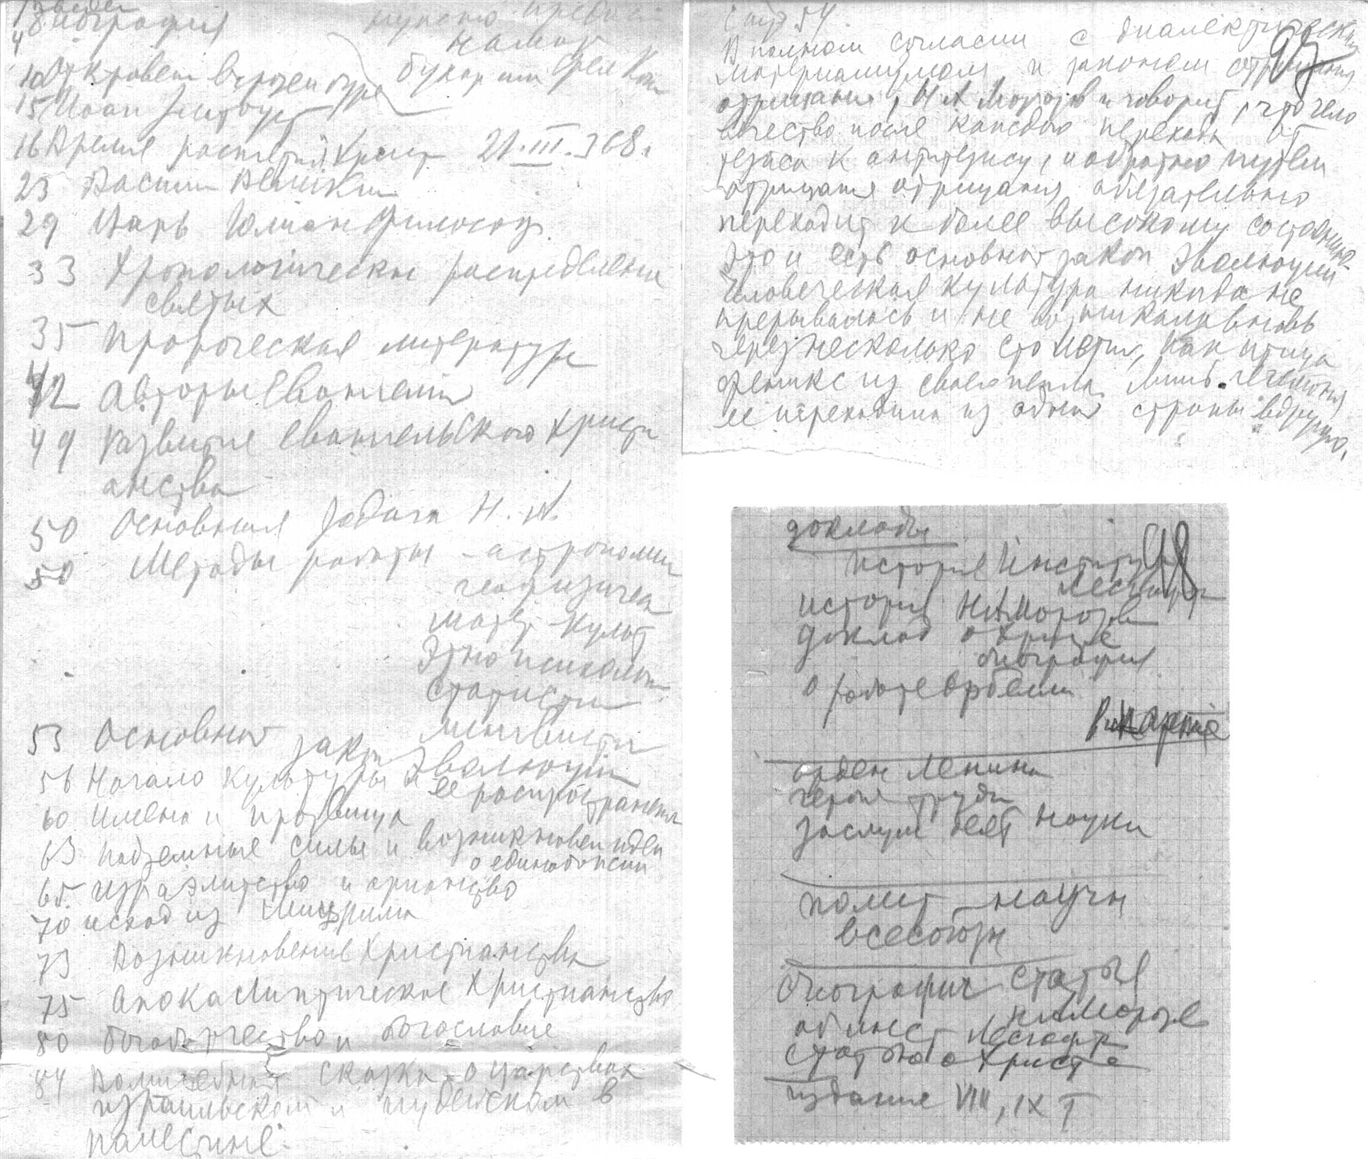 4 биография
10 Откровен в грозе и буре
15 Иоан Златоуст
16 Время распятия Христ 21.III.368 г
23 Васили Великий
29 Царь Юлиан философ
33 Хронологическое распределение
святых
35 Пророческая литература
42 Авторы Евангелий
49 Развитие Евангельского христи
анства
50 Основная задача Н. А.
50 Методы работы – астрономи
геофизическ
матер культ
Этнопсихолог
статисти
лингвисти
53 Основной закон Эволюции
56 Начало культуры и ее распространен
60 Имена и прозвища
63 Подземные силы и возникновен идеи
о единобожии
65. израэлитство и арианство
70 исход из Мицрима
73 Возникновение Христианства
75 Апокалиптическое Христианство
80 богоборчество и богословие
84 Волшебная сказка о царствах
израильском и иудейском в
палестине.
Стр 54.
97
В полном согласии с диалектическим
материализмом и законом отрицания
отрицания, Н А Морозов и говорит, что чело
вечество после каждого перехода от
тезиса к антитезису, и обратно путем
отрицания отрицания, обязательно
переходит к более высокому состоянию
Это и есть основной закон эволюции
Человеческая культура никогда не
прерывалась и не возникала вновь
через несколько столетий, как птица
феникс из своего пепла. Лишь гегемония
ее переходила из одной страны в другую.
98
доклады
история Института
Лесгафта
история Н.А. Морозов
доклад о Христе
биография
о работе Орбели
в партие
орден Ленина
героя труда
заслуж деят науки
полит – научн
всесоюзн
биографич статья
Н.А. Морозов
об инст Лесгафт
статью о Христе
издание VIII, IX т